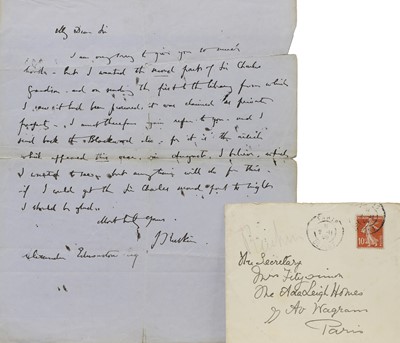 My Dear Sir
I am very sorry to give you so much
trouble - but I wanted the novel parts of Sir Charles
Grandison and on sending the first to the library from which
I saw it had been procured, it was claimed as private
property. I must therefore again refer to you - and I
send back the Blackwood also - for it is the article
which appeared this year, in August, I believe, which
I wanted to see - but anything will do for this -
if I could get the Sir Charles to night
I should be glad.
Most truly yours
J Ruskin
Alexander Edmonston
The Secretary
Mrs Fitzsimon
The Ada Leigh Homes
Av Wagram
Paris
10